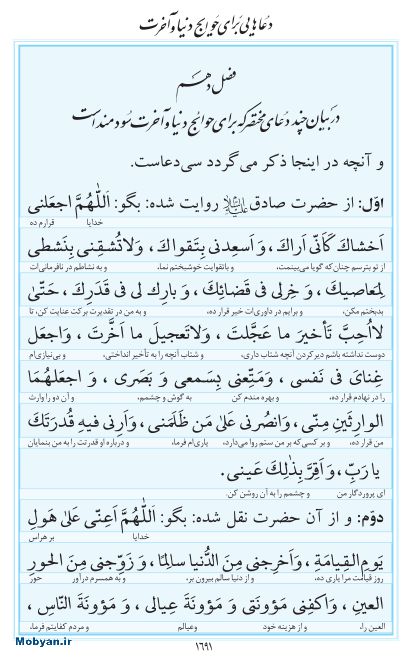 دعاهایی برای حوایج دنیا و آخرت
فصل دهم
در بیان چند دعای مختصر که برای حوائج دنیا و آخرت سودمند است
و آنچه در اینجا ذکر می گردد سی دعاست.
اوّل: از حضرت صادق علیه‌السلام روایت شده: بگو: اَللّٰهُمَّ اجعَلنی
خدایا قرارم ده
اَخشاكَ كَاَنّی اَراكَ، وَ اَسعِدنی بِتَقواكَ، وَلاتُشقِنی بِنَشطی
از تو بترسم چنان‌که گویا می‌بینمت، و با تقوایت خوشبختم نما، و به نشاطم در نافرمانی‌ات
لِمَعاصیكَ، وَ خِرلی فی قَضائِكَ، وَ بارِك لی فی قَدَرِكَ، حَتّیٰ
بدبختم مکن، و برایم در داوری‌ات خیر قرار ده، و به من در تقدیرت برکت عنایت کن، تا
لااُحِبَّ تَأخیرَ ما عَجَّلتَ، وَلاتَعجیلَ ما اَخَّرتَ، وَاجعَل
دوست نداشته باشم دیر کردن آنچه شتاب داری، و شتاب آنچه را به تأخیر انداختی، و بی‌نیازی‌ام
غِنایَ فی نَفسی، وَمَتِّعنی بِسَمعی وَ بَصَری، وَ اجعَلهُمَا
را در نهادم قرار ده، و بهره مندم کن به گوش و چشمم، و آن دو را وارث
الوارِثَینِ مِنّی، وَانصُرنی عَلیٰ مَن ظَلَمَنی، وَاَرِنی فیهِ قُدرَتَكَ
من قرار ده، و بر کسی که بر من ستم روا می‌دارد، یاری‌ام فرما، و درباره او قدرتت را به من بنمایان
یا رَبِّ، وَ اَقِرَّ بِذٰلِكَ عَینی.
ای پروردگار من و چشمم را به آن روشن کن.
دوّم: و از آن حضرت نقل شده: بگو: اَللّٰهُمَّ اَعِنّی عَلیٰ هَولِ
خدایا بر هراس
یَومِ القِیامَةِ، وَاَخرِجنی مِنَ الدُّنیا سالِمًا، وَ زَوِّجنی مِنَ الحورِ
روز قیامت مرا یاری ده، و از دنیا سالم بیرون بر، و به همسرم درآور حور
العینِ، وَاکفِنی مَؤونَتی وَ مَؤونَةَ عِیالی، وَ مَؤونَةَ النّاسِ،
العین را، و از هزینه خود و عیالم و مردم کفایتم فرما،
۱۶۹۱
Mobyan.ir